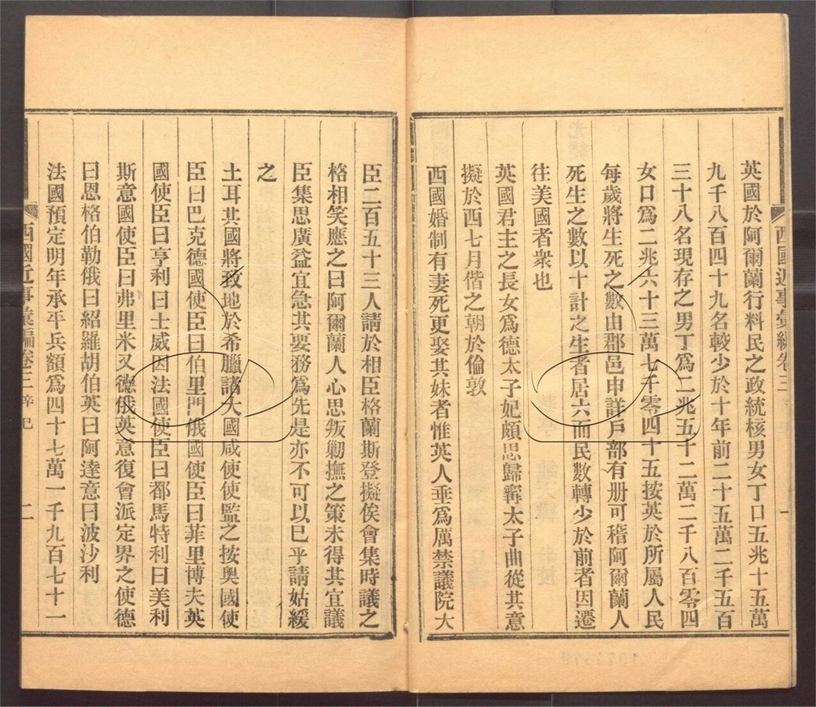 英國於阿爾蘭行料民之政統核男女丁口五兆十五萬
九千八百四十九名較少於十年前二十五萬二千五百
三十八名現存之男丁爲二兆五十二萬二千八百零四
女口爲二兆六十三萬七千零四十五按英於所屬人民
每歲將生死之數由郡邑申詳戶部有册可稽阿爾蘭人
死生之數以十計之生者居六而民數轉少於前者因遷
往美國者衆也
英國君主之長女爲德太子妃頗思歸寧太子曲從其意
擬於西七月偕之朝於倫敦
西國婚制有妻死更娶其妹者惟英人垂爲厲禁議院大
西國近事彙編卷三
一
臣二百五十三人請於相臣格蘭斯登擬俟會集時議之
格相笑應之曰阿爾蘭人心思叛勦撫之策未得其宜議
臣集思廣益宜急其要務爲先是亦不可以已乎請姑緩
之
土耳其國將致地於希臘諸大國咸使使監之按奧國使
臣曰巴克德國使臣曰伯里門俄國使臣曰菲里博夫英
國使臣曰亨利曰士威因法國使臣曰都馬特利曰美利
斯意國使臣曰弗里米又德俄英意復會派定界之使德
曰恩格伯勒俄曰紹羅胡伯英曰阿達意曰波沙利
法國預定明年承平兵額爲四十七萬一千九百七十一
西國近事彙編卷三 辛巳
二